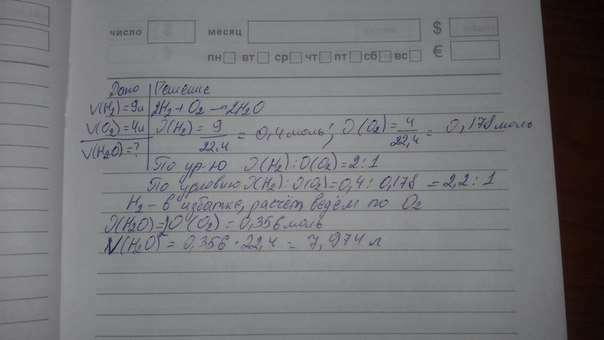 число месяц $
пн вт ср чт пт сб вс €
Дано Решение
V(H₂)=9л 2H₂+O₂→2H₂O
V(O₂)=4л ν(H₂)=9/22.4=0,4моль; ν(O₂)=4/22,4=0,178моль
V(H₂O)=?
По ур-ю ν(H₂):ν(O₂)=2:1
По условию ν(H₂):ν(O₂)=0,4:0,178=2,2:1
H₂-в избытке, расчёт ведём по O₂
ν(H₂O)=2ν(O₂)=0,356моль
V(H₂O)=0,356·22,4=7,974л